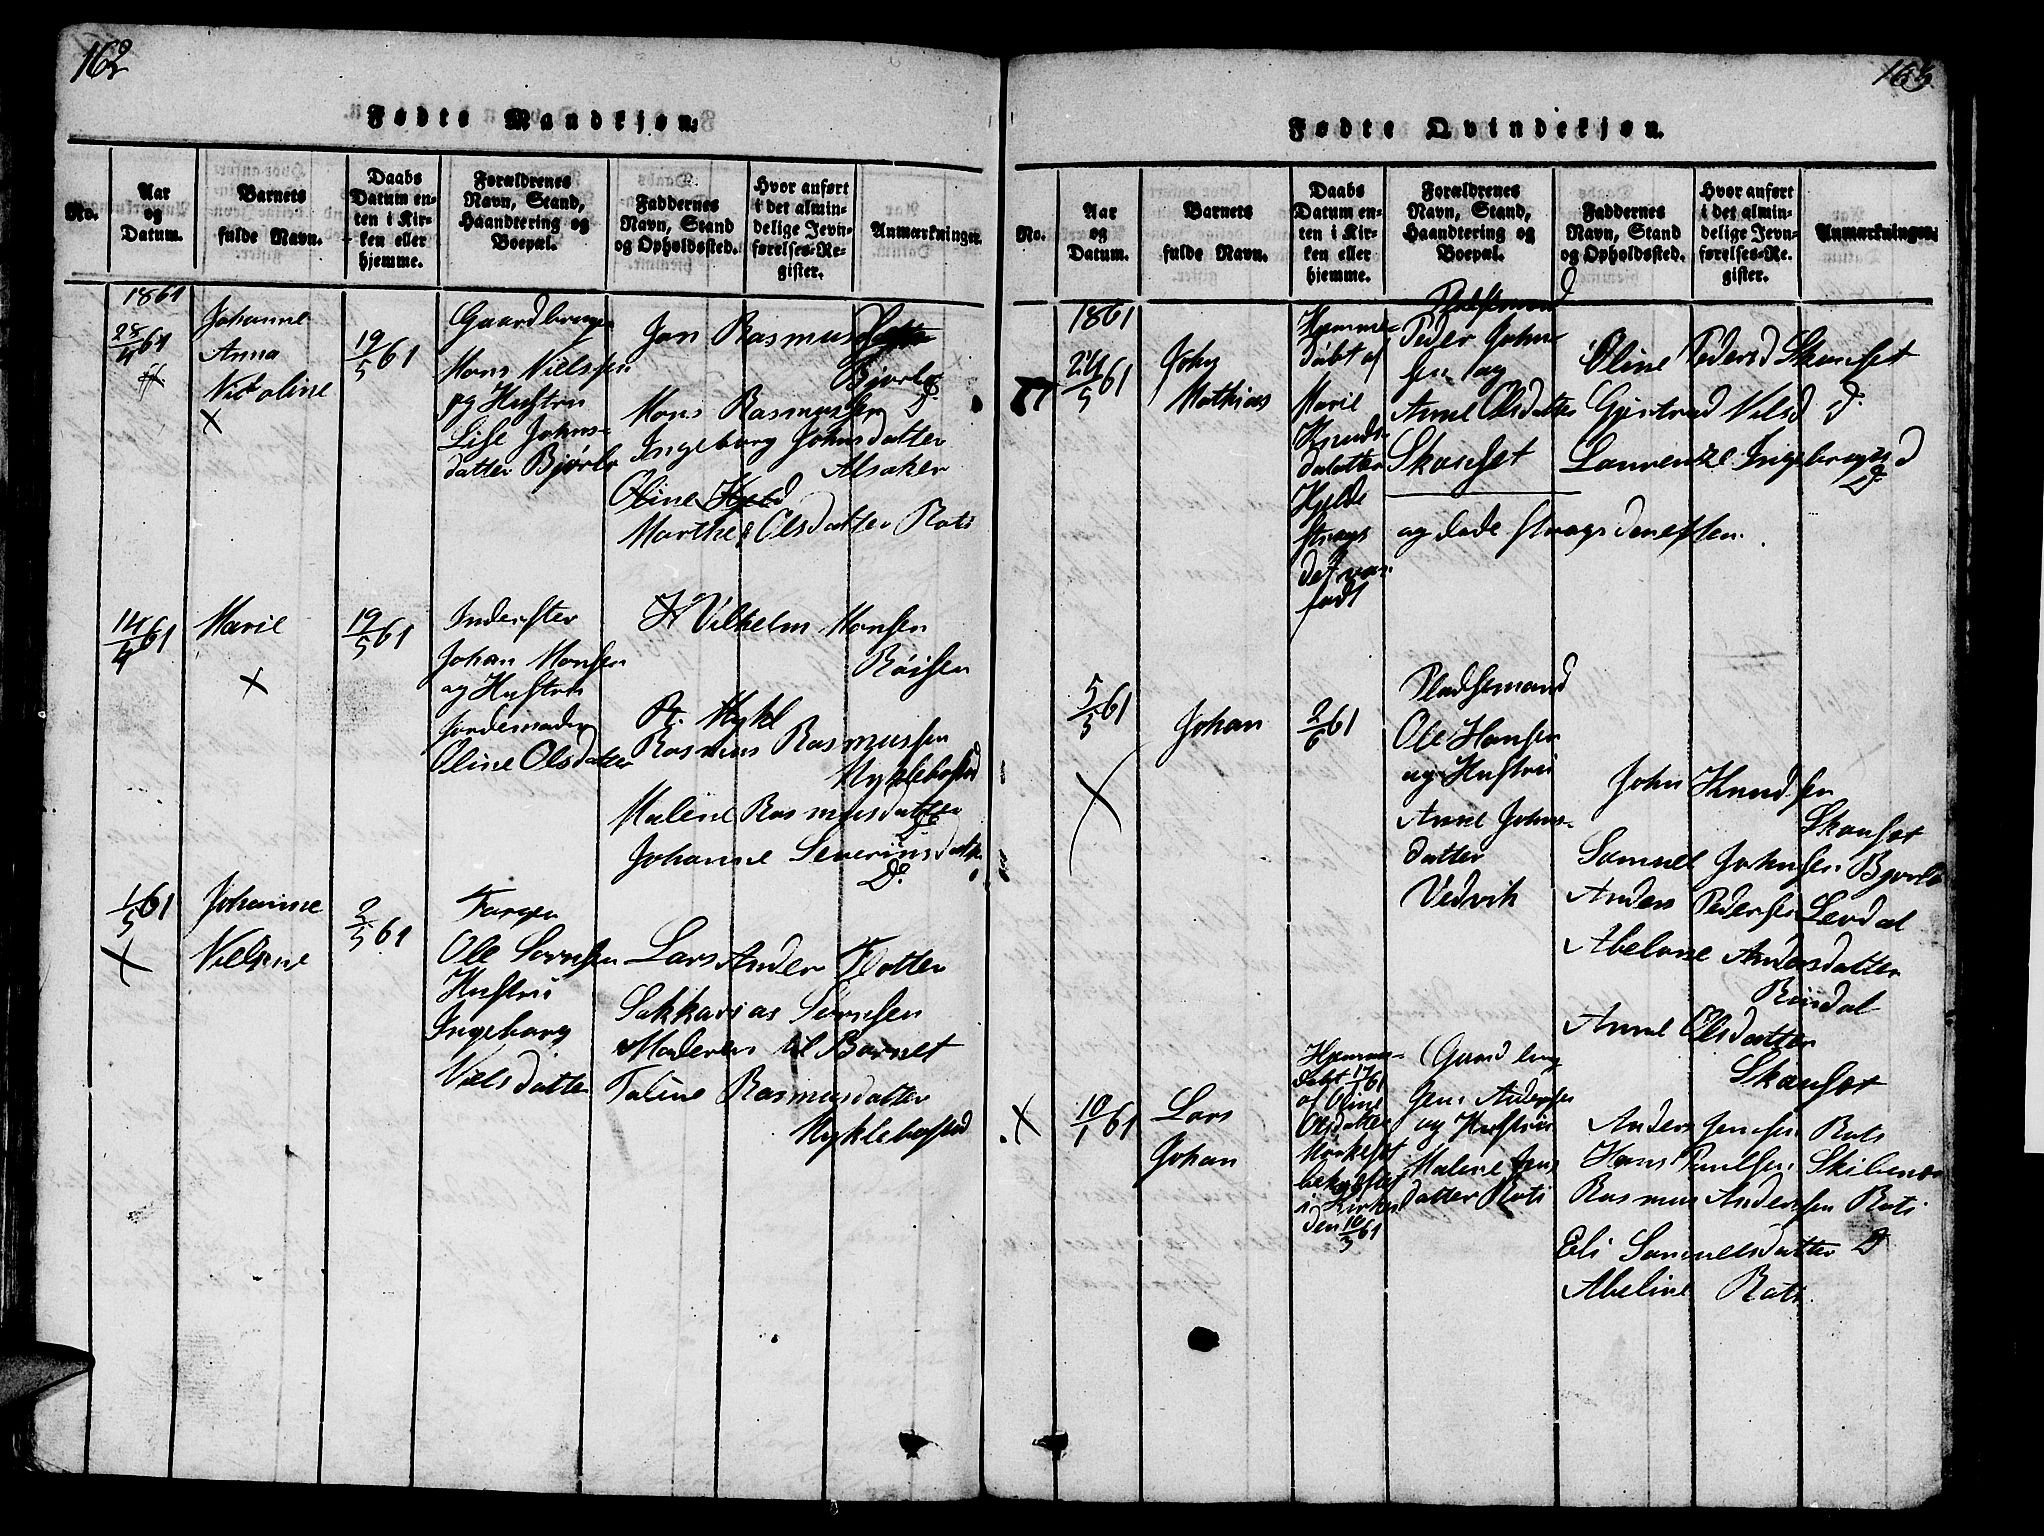 162
Fødte Mandkjøn.
No.
Aar
og
Datum.
Barnets
fulde Navn.
Daabs
Datum en-
ten i Kir-
ken eller
hjemme.
Forældrenes
Navn, Stand,
Haandtering og
Boepæl.
Faddernes
Navn, Stand
og Opholdssted.
Hvor anført
i det almin-
delige Jevn-
førelses-Re-
gister.
Anmærkninger.
1861
28/4 61
Johanne
Anna
Nicoline
X
19/5 61
Gaardbruger
Mons Nielssen
og Hustru
Lise Johns-
datter Bjørlo
Jon Rasmussen
Bjørlo
Mons Rasmussen D
Ingeborg Johnsdatter
Alsaker
Oline Hjeld
Marthe Olsdatter Roti
14/4 61
Marie
X
19/5 61
Inderster
Johan Monsen
og Hustru
Jordemoder
Oline Olsdatter
Vilhelm Monsen
Røisen
Rasmus Rasmussen
Myklebostad
Maline Rasmusdatter
Do
Johanne Severinsdatter
Do
1/5 61
X
Johanne
Nielsine
2/5 61
Farger
Ole Sørnsen
Hustru
Ingeborg
Nielsdatter
Lars Ander Flotten
Sakkarias Sørnsen
Moderen til Barnet
Taline Rasmusdatter
Myklebostad
163
Fødte Qvindekjøn.
No.
Aar
og
Datum.
Barnets
fulde Navn.
Daabs
Datum en-
ten i Kir-
ken eller
hjemme.
Forældrenes
Navn, Stand,
Haandtering og
Boepæl.
Faddernes
Navn, Stand
og Opholdssted.
Hvor anført
i det almin-
delige Jevn-
førelses-Re-
gister.
Anmærkninger.
1861
24/5 61
John
Mathias
Hjemme-
døbt af
Marie
Knuds-
datter
Hjelde
strags
det var
født
Pladsemand
Peder John-
sen og
Anne Olsdatter
Skanset
og døde strags derefter.
Oline Pedersd Skanset
Gjertrud Nilsd D
Laurenze Ingebrigtsd
D
5/5 61
X
Johan
2/6 61
Pladsemand
Ole Hansen
og Hustru
Anne Johns-
datter
Vedvik
John Knudsen
Skanset
Samuel Johnsen Bjørlo
Anders Pedersen Levdal
Abelone Andersdatter
Røisdal
Anne Olsdatter
Skanset
X
10/1 61
Lars
Johan
Hjemme-
døbt 17/1 61
af Oline
Olsdatter
Morkeset
bekreftet
i Kirken
den 10/3 61
Gaardbrug
Jens Andersen
og Hustru
Malene Jens
datter Roti
Anders Jensen Roti
Hans Paulsen Skibenes
Rasmus Andersen Roti
Eli Samuelsdatter D
Abeline Roti